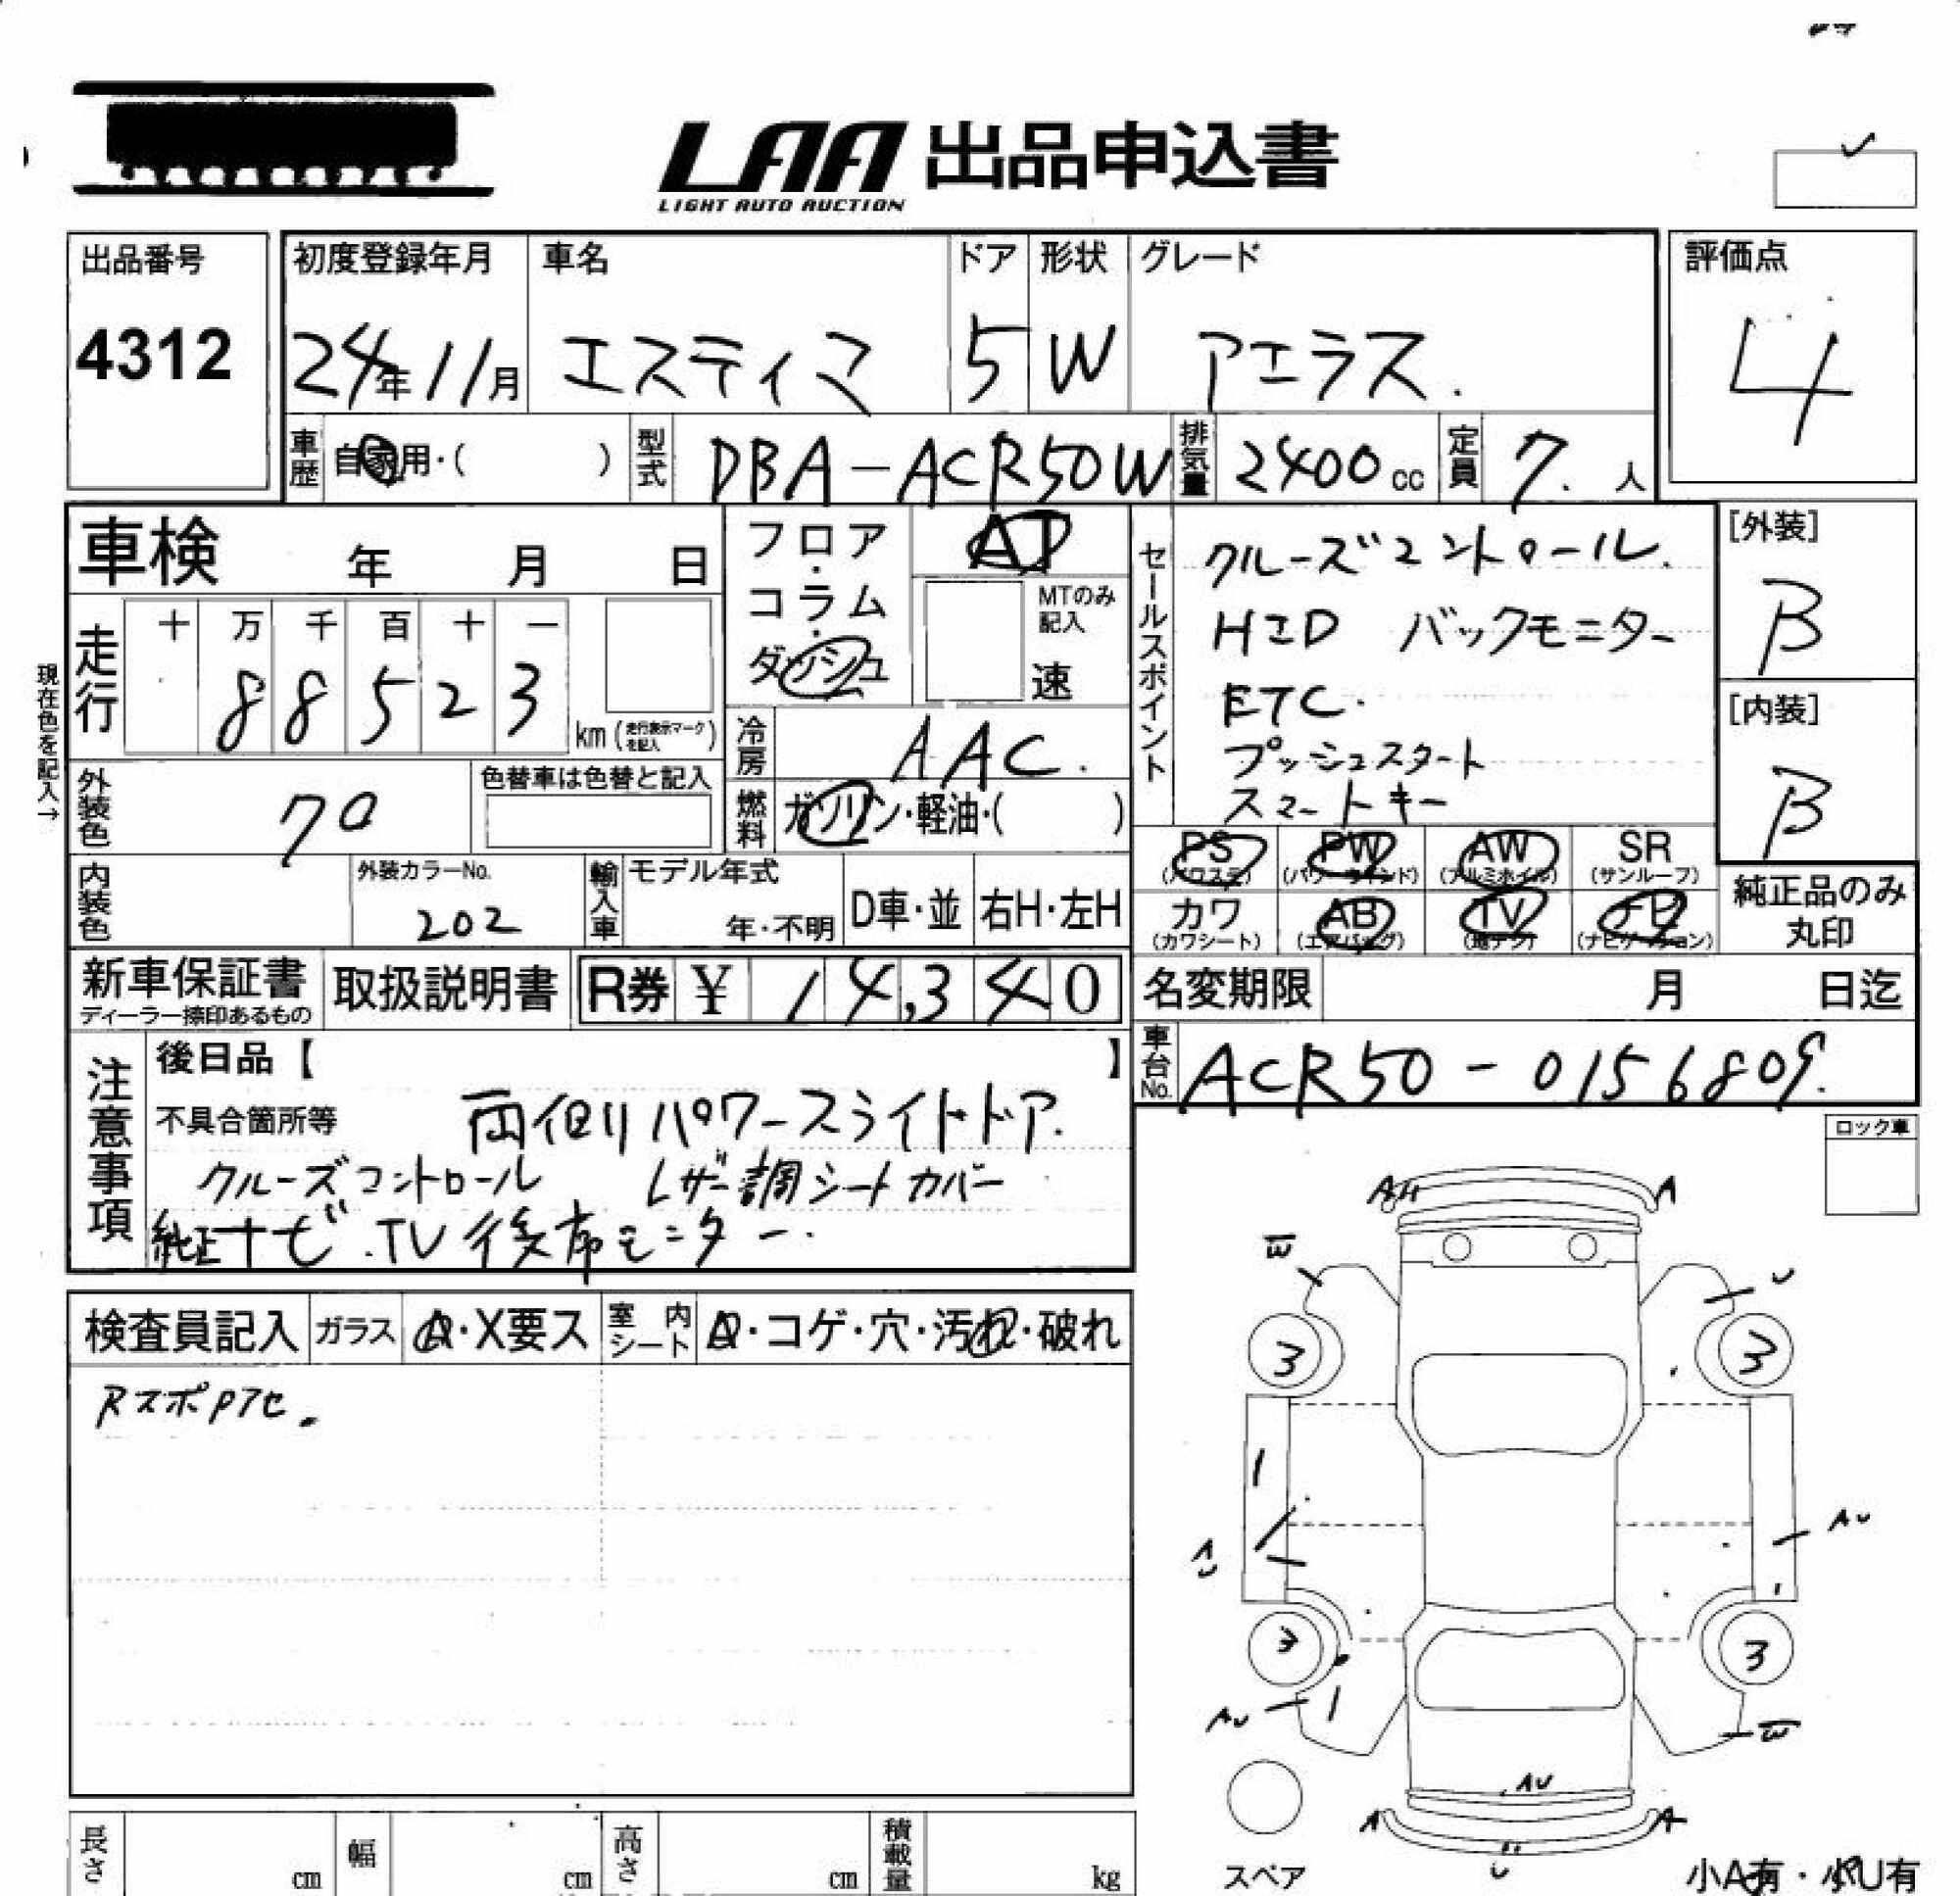 LAA 出品申込書
LIGHT AUTO AUCTION
出品番号
4312
初度登録年月 車名 ドア 形状 グレード
24年11月 エスティマ 5 W アエラス.
評価点
4
車歴 自家用・( ) 型式 DBA-ACR50W 排気量 2400cc 定員 7. 人
車検 年 月 日
フロア・コラム・ダッシュ
AT
MTのみ記入
速
セールスポイント
クルーズコントロール.
HID バックモニター
ETC.
プッシュスタート
スマートキー
[外装]
B
[内装]
B
現在色を記入→
走行 十 万 千 百 十 一
88523
km(走行表示マークを記入)
冷房 AAC.
燃料 ガソリン・軽油・( )
外装色 70 色替車は色替と記入
内装色 外装カラーNo. 202
輸入車 モデル年式 年・不明 D車・並 右H・左H
PS(パワステ) PW(パワーウインド) AW(アルミホイル) SR(サンルーフ)
カワ(カワシート) AB(エアバッグ) TV(地デジ) (ナビゲーション)
純正品のみ丸印
新車保証書 ディーラー捺印あるもの 取扱説明書 R券 ¥ 14,340
名変期限 月 日迄
車台No. ACR50-0156809.
注意事項
後日品【 】
不具合箇所等 両側パワースライドドア.
クルーズコントロール レザー調シートカバー
純正ナビ.TV 後席モニター.
ロック車
検査員記入 ガラス A・X要ス 室内シート A・コゲ・穴・汚れ・破れ
RスポPアセ.
A A
W U
3 3
AU
AU
3 3
AU W
AU
A A
U
スペア
小A有・小U有
長さ cm 幅 cm 高さ cm 積載量 kg